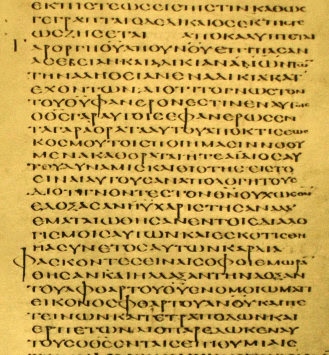 ΕΚΠΙϹΤΕΩϹΕΙϹΠΙϹΤΙΝΚΑΘΩϹ
ΓΕΓΡΑΠΤΑΙΟΔΙΚΑΙΟϹΕΚΠΙϹΤΕ
ΩϹΖΗϹΕΤΑΙ ΑΠΟΚΑΛΥΠΤΕΤΑΙ
ΓΑΡΟΡΓΗΘΥΑΠΟΥΝΟΥΕΠΙΠΑϹΑΝ
ΑϹΕΒΕΙΑΝΚΑΙΑΔΙΚΙΑΝΑΝΩΝΤΩ
ΤΗΝΑΛΗΘΕΙΑΝΕΝΑΔΙΚΙΑΚΑΤ
ΕΧΟΝΤΩΝΔΙΟΤΙΤΟΓΝΩϹΤΟΝ
ΤΟΥΘΥΦΑΝΕΡΟΝΕϹΤΙΝΕΝΑΥΤΟΙϹ
ΟΘϹΓΑΡΑΥΤΟΙϹΕΦΑΝΕΡΩϹΕΝ
ΤΑΓΑΡΑΟΡΑΤΑΑΥΤΟΥΑΠΟΚΤΙϹΕΩϹ
ΚΟϹΜΟΥΤΟΙϹΠΟΙΗΜΑϹΙΝΝΟΟΥ
ΜΕΝΑΚΑΘΟΡΑΤΑΙΗΤΕΑΙΔΙΟϹΑΥ
ΤΟΥΔΥΝΑΜΙϹΚΑΙΘΕΙΟΤΗϹΕΙϹΤΟ
ΕΙΝΑΙΑΥΤΟΥϹΑΝΑΠΟΛΟΓΗΤΟΥϹ
ΔΙΟΤΙΓΝΟΝΤΕϹΤΟΝΘΝΟΥΧΩϹΘΝ
ΕΔΟΞΑϹΑΝΗΥΧΑΡΙϹΤΗϹΑΝΑΛΛ
ΕΜΑΤΑΙΩΘΗϹΑΝΕΝΤΟΙϹΔΙΑΛΟ
ΓΙϹΜΟΙϹΑΥΤΩΝΚΑΙΕϹΚΟΤΙϹΘΗ
ΗΑϹΥΝΕΤΟϹΑΥΤΩΝΚΑΡΔΙΑ
ΦΑϹΚΟΝΤΕϹΕΙΝΑΙϹΟΦΟΙΕΜΩΡΑ
ΘΗϹΑΝΚΑΙΗΛΛΑΞΑΝΤΗΝΔΟΞΑΝ
ΤΟΥΑΦΘΑΡΤΟΥΘΥΕΝΟΜΟΙΩΜΑΤΙ
ΕΙΚΟΝΟϹΦΘΑΡΤΟΥΑΝΟΥΚΑΙΠΕ
ΤΕΙΝΩΝΚΑΙΤΕΤΡΑΠΟΔΩΝΚΑΙ
ΕΡΠΕΤΩΝΔΙΟΠΑΡΕΔΩΚΕΝΑΥ
ΤΟΥϹΟΘϹΕΝΤΑΙϹΕΠΙΘΥΜΙ